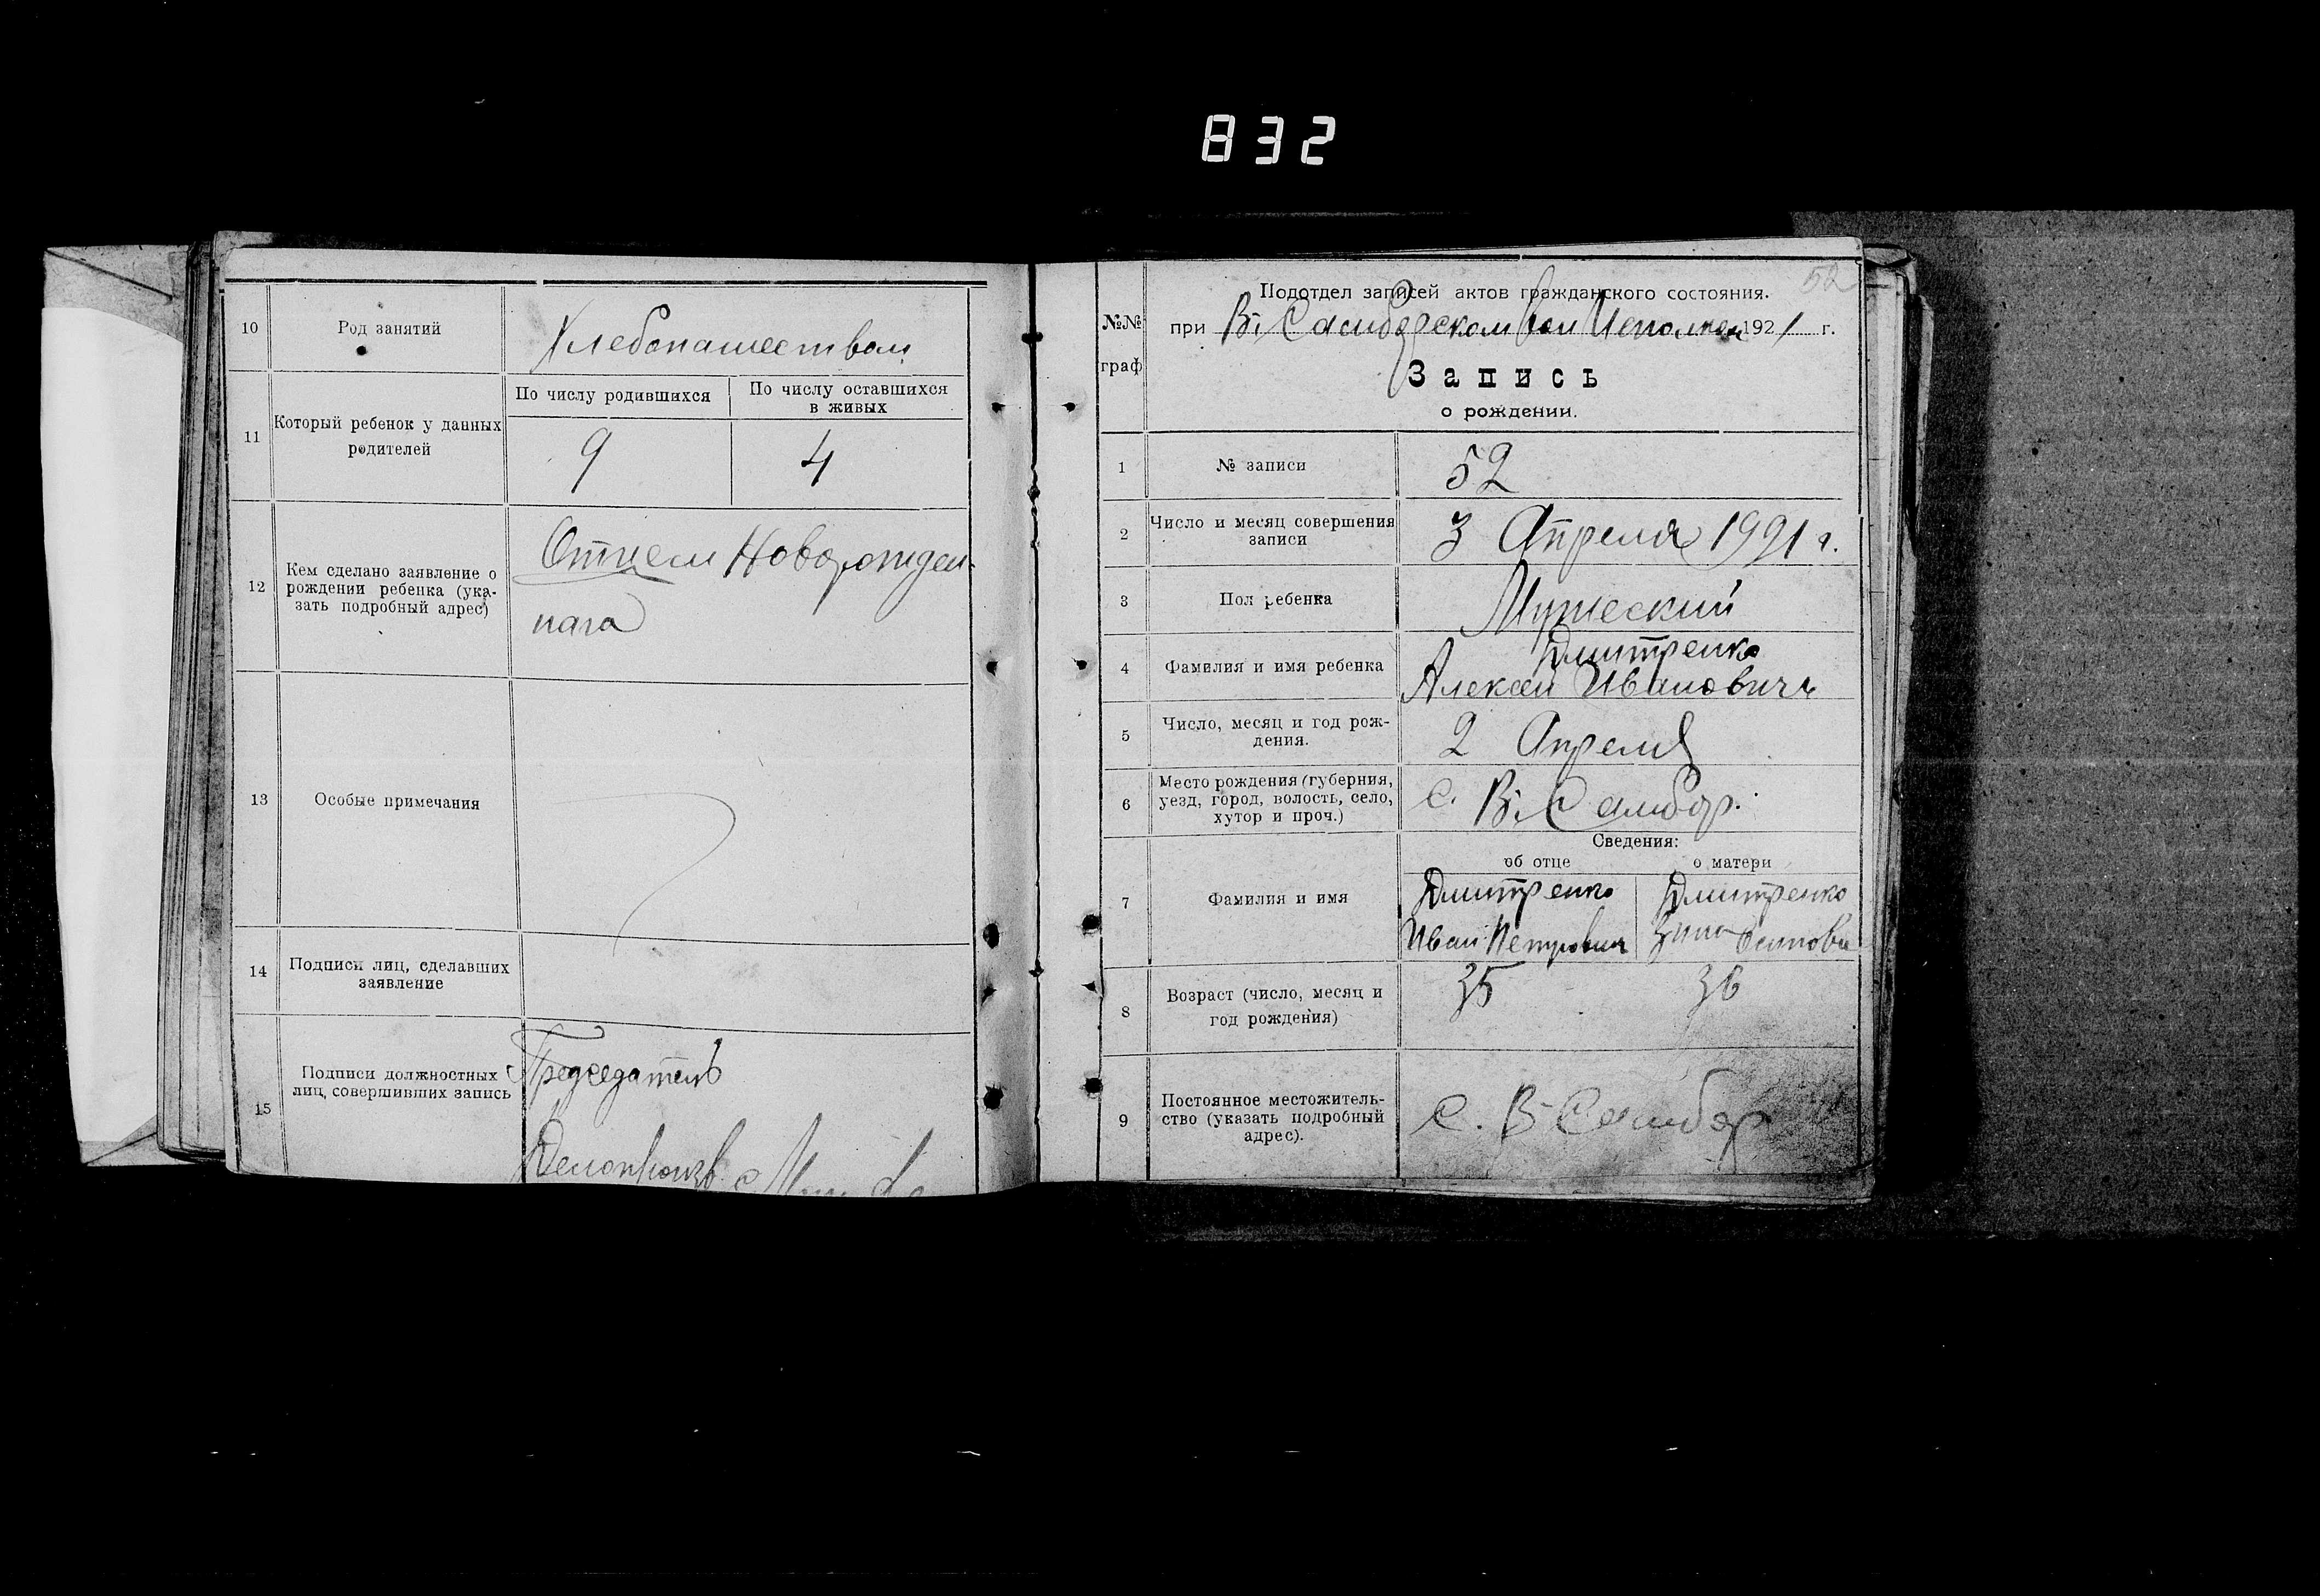 832
10
Род занятий
Хлебопашеством
11
Который ребенок у данных
родителей
По числу родившихся
По числу оставшихся
в живых
9
4
12
Кем сделано заявление о
рождении ребенка (ука-
зать подробный адрес)
Отцем Новорожден-
наго
13
Особые примечания
14
Подписи лиц, сделавших
заявление
15
Подписи должностных
лиц, совершивших запись
Председатель
Делопроизв.
52
№№
граф
Подотдел записей актов гражданского состояния.
при В. Самборском Вол Исполком 1921 г.
Запись
о рождении.
1
№ записи
52
2
Число и месяц совершения
записи
3 Апреля 1921 г.
3
Пол ребенка
Мужеский
4
Фамилия и имя ребенка
Дмитренко
Алексей Ивановичъ
5
Число, месяц и год рож-
дения.
2 Апреля
6
Место рождения (губерния,
уезд, город, волость, село,
хутор и проч.)
с. В. Самбор.
Сведения:
об отце
о матери
7
Фамилия и имя
Дмитренко
Иван Петрович
Дмитренко
Зина Осипова
8
Возраст (число, месяц и
год рождения)
35
36
9
Постоянное местожитель-
ство (указать подробный
адрес).
С. В-Самбор